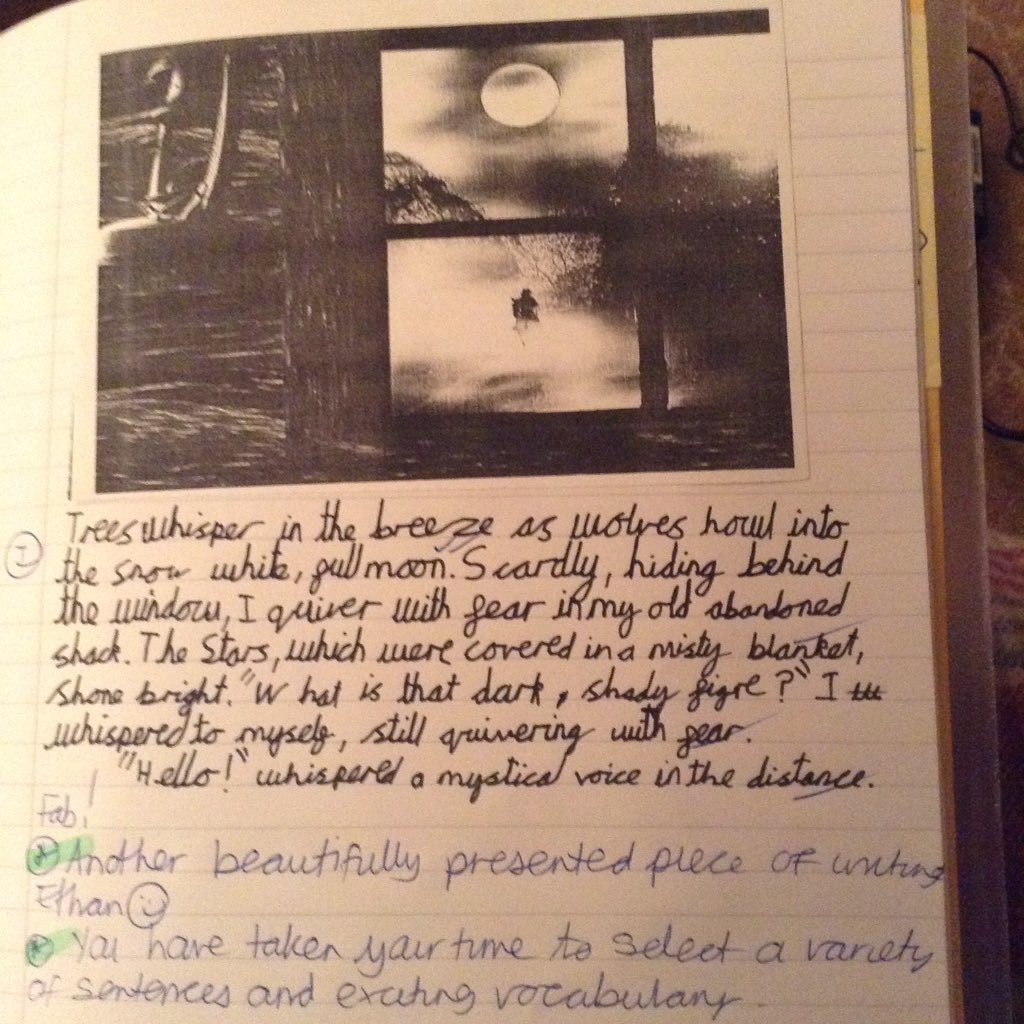 Trees whisper in the breeze as wolves howl into
the snow white, full moon. Scardly, hiding behind
the window, I quiver with fear in my old abandoned
shack. The Stars, which were covered in a misty blanket,
shone bright. "What is that dark, shady figre?" I
whispered to myself, still quivering with fear.
"Hello!" whispered a mystical voice in the distance.
Fab!
Another beautifully presented piece of writing
Ethan
You have taken your time to select a variety
of sentences and exciting vocabulary.